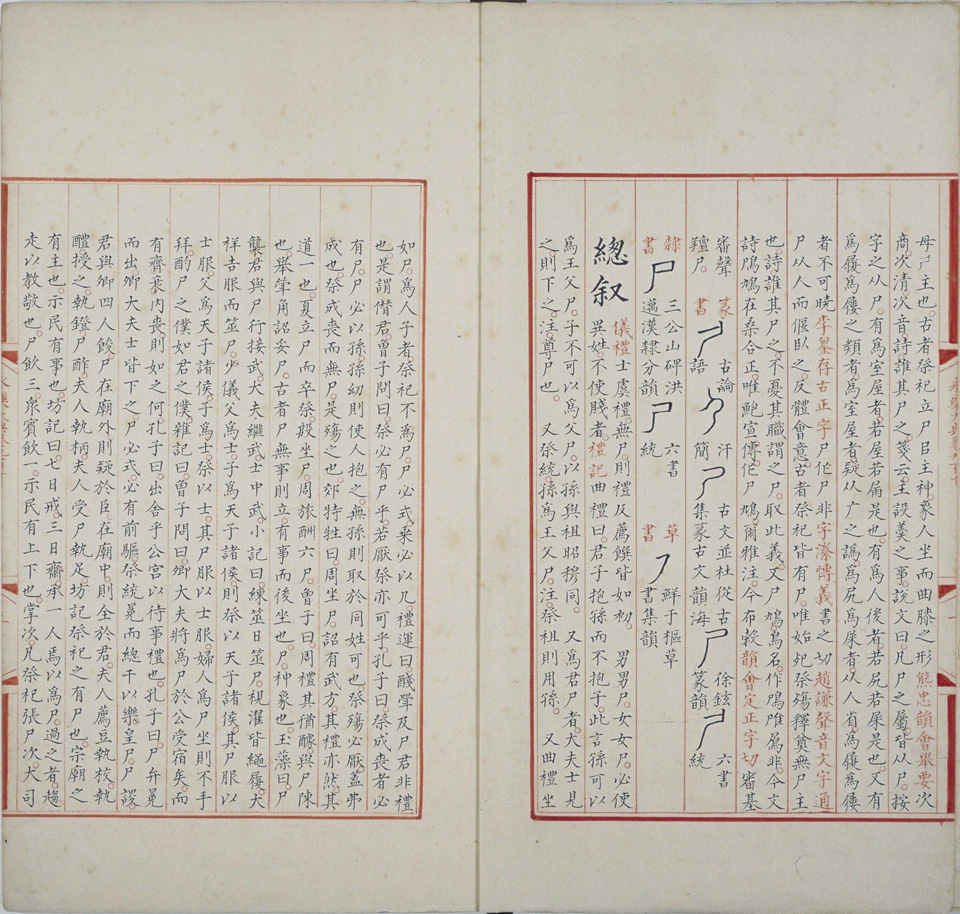 母尸主也古者祭祀立尸㠯主神象人坐而曲膝之形熊忠韻會舉要次
商次清次音詩誰其尸之箋云主設羹之事說文曰凡尸之屬皆从尸按
字之从尸有爲室屋者若屋若屚是也有爲人後者若尻若屎是也又有
爲履爲僂之類者爲室屋者疑从广之譌爲尻爲屎者从人省爲履爲僂
者不可曉李存古正字尸作尸非字潫博義書之切趙謙聲音文字通
尸从人而偃臥之反體會意古者祭祀皆有尸唯始死祭殤釋奠無尸主
也詩誰其尸之不憂其職謂之尸取此義又尸鳩鳥名作鳲雎屬非今文
詩鳲鳩在桑合正唯鮑宣傳作尸鳩爾雅注今布穀韻會定正字切審基
審聲羶尸
篆書 古論語 汗簡 古文並杜從古集篆古文韻海 徐鉉篆韻 六書統
隸書 尸 三公山碑洪邁漢隸分韻 尸 六書統 草書 鮮于樞草書集韻
總叙
儀禮士虞禮無尸則禮及薦饌皆如初 男男尸女女尸必使
異姓不使賤者禮記曲禮曰君子抱孫而不抱子此言孫可以
爲王父尸子不可以爲父尸以孫與祖昭穆同 又爲君尸者大夫士見
之則下之注尊尸也 又祭統孫爲王父尸注祭祖則用孫 又曲禮坐
如尸爲人子者祭祀不爲尸尸必式乘必以几禮運曰醆斝及尸君非禮
也是謂僣君曾子問曰祭必有尸乎若厭祭亦可乎孔子曰祭成喪者必
有尸尸必以孫孫幼則使人抱之無孫則取於同姓可也祭殤必厭蓋弗
成也祭成喪而無尸是殤之也郊特牲曰周坐尸詔有武方其禮亦然其
道一也夏立尸而卒祭殷坐尸周旅酬六尸曾子曰周禮其猶醵與尸陳
也舉斝角詔妥尸古者尸無事則立有事而後坐也尸神象也玉藻曰尸
襲君與尸行接武大夫繼武士中武小記曰練筮日筮尸視濯皆繩屨大
祥吉服而筮尸少儀父爲士子爲天子諸侯則祭以天子諸侯其尸服以
士服父爲天子諸侯子爲士祭以士其尸服以士服婦人爲尸坐則不手
拜酌尸之僕如君之僕雜記曰曾子問曰卿大夫將爲尸於公受宿矣而
有齊衰內喪則如之何孔子曰出舍乎公宮以待事禮也孔子曰尸弁冕
而出卿大夫士皆下之尸必式必有前驅祭統冕而總干以樂皇尸尸謖
君與卿四人餕尸在廟外則疑於臣在廟中則全於君夫人薦豆執校執
醴授之執鐙尸酢夫人執柄夫人受尸執足坊記祭祀之有尸也宗廟之
有主也示民有事也坊記曰七日戒三日齋承一人焉以爲尸過之者趨
走以教敬也尸飲三衆賓飲一示民有上下也掌次凡祭祀張尸次大司